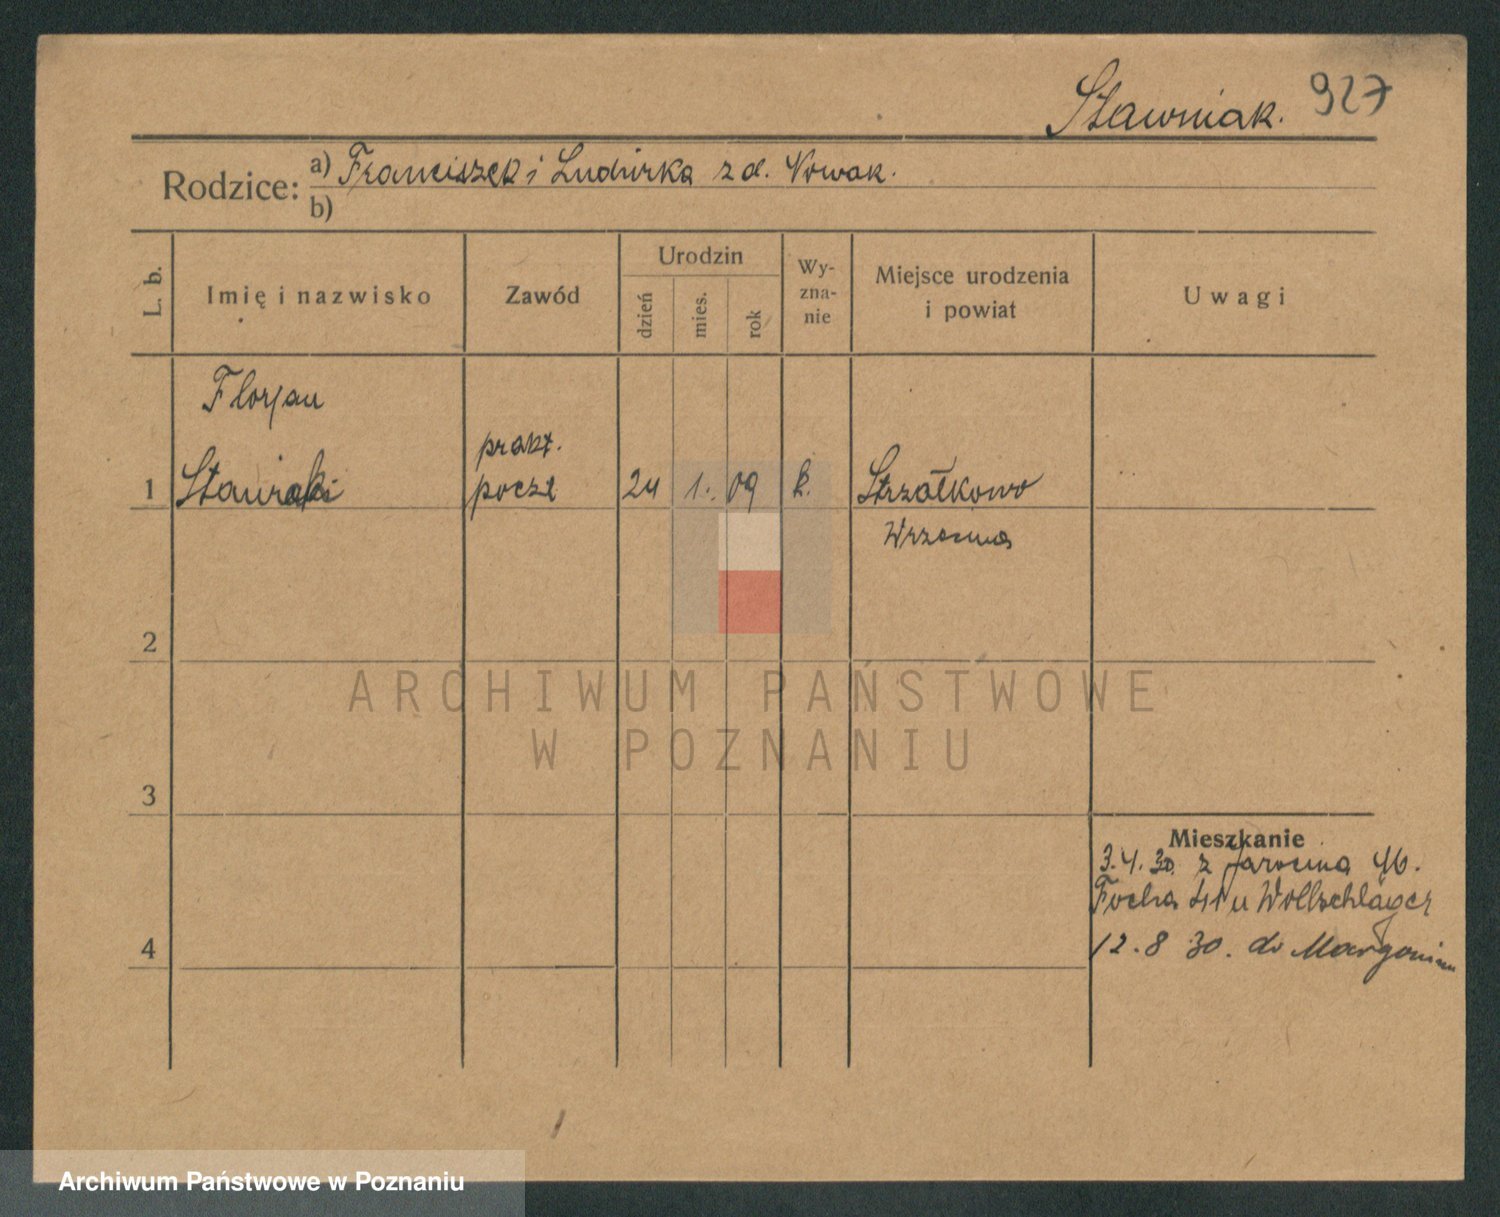 Stawniak. 927
Rodzice: a) Franciszek i Ludwika z d. Nowak.
b)
L. b. Imię i nazwisko Zawód Urodzin dzień mies. rok Wy-zna-nie Miejsce urodzenia i powiat Uwagi
Florjan
prakt.
1 poczt 24 1. 09 k. Strzałkowo
Września
2
ARCHIWUM PAŃSTWOWE
W POZNANIU
3
Mieszkanie
3.4.30. z Jarocina
Focha u Wollschläger
4 12.8 30. do Margonina
Archiwum Państwowe w Poznaniu